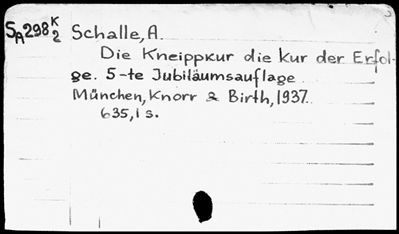 SA298 K/2 Schalle, A.
Die Kneippkur die kur der Erfol-
ge. 5-te Jubiläumsauflage
München, Knorr & Birth, 1937.
635, 1 s.